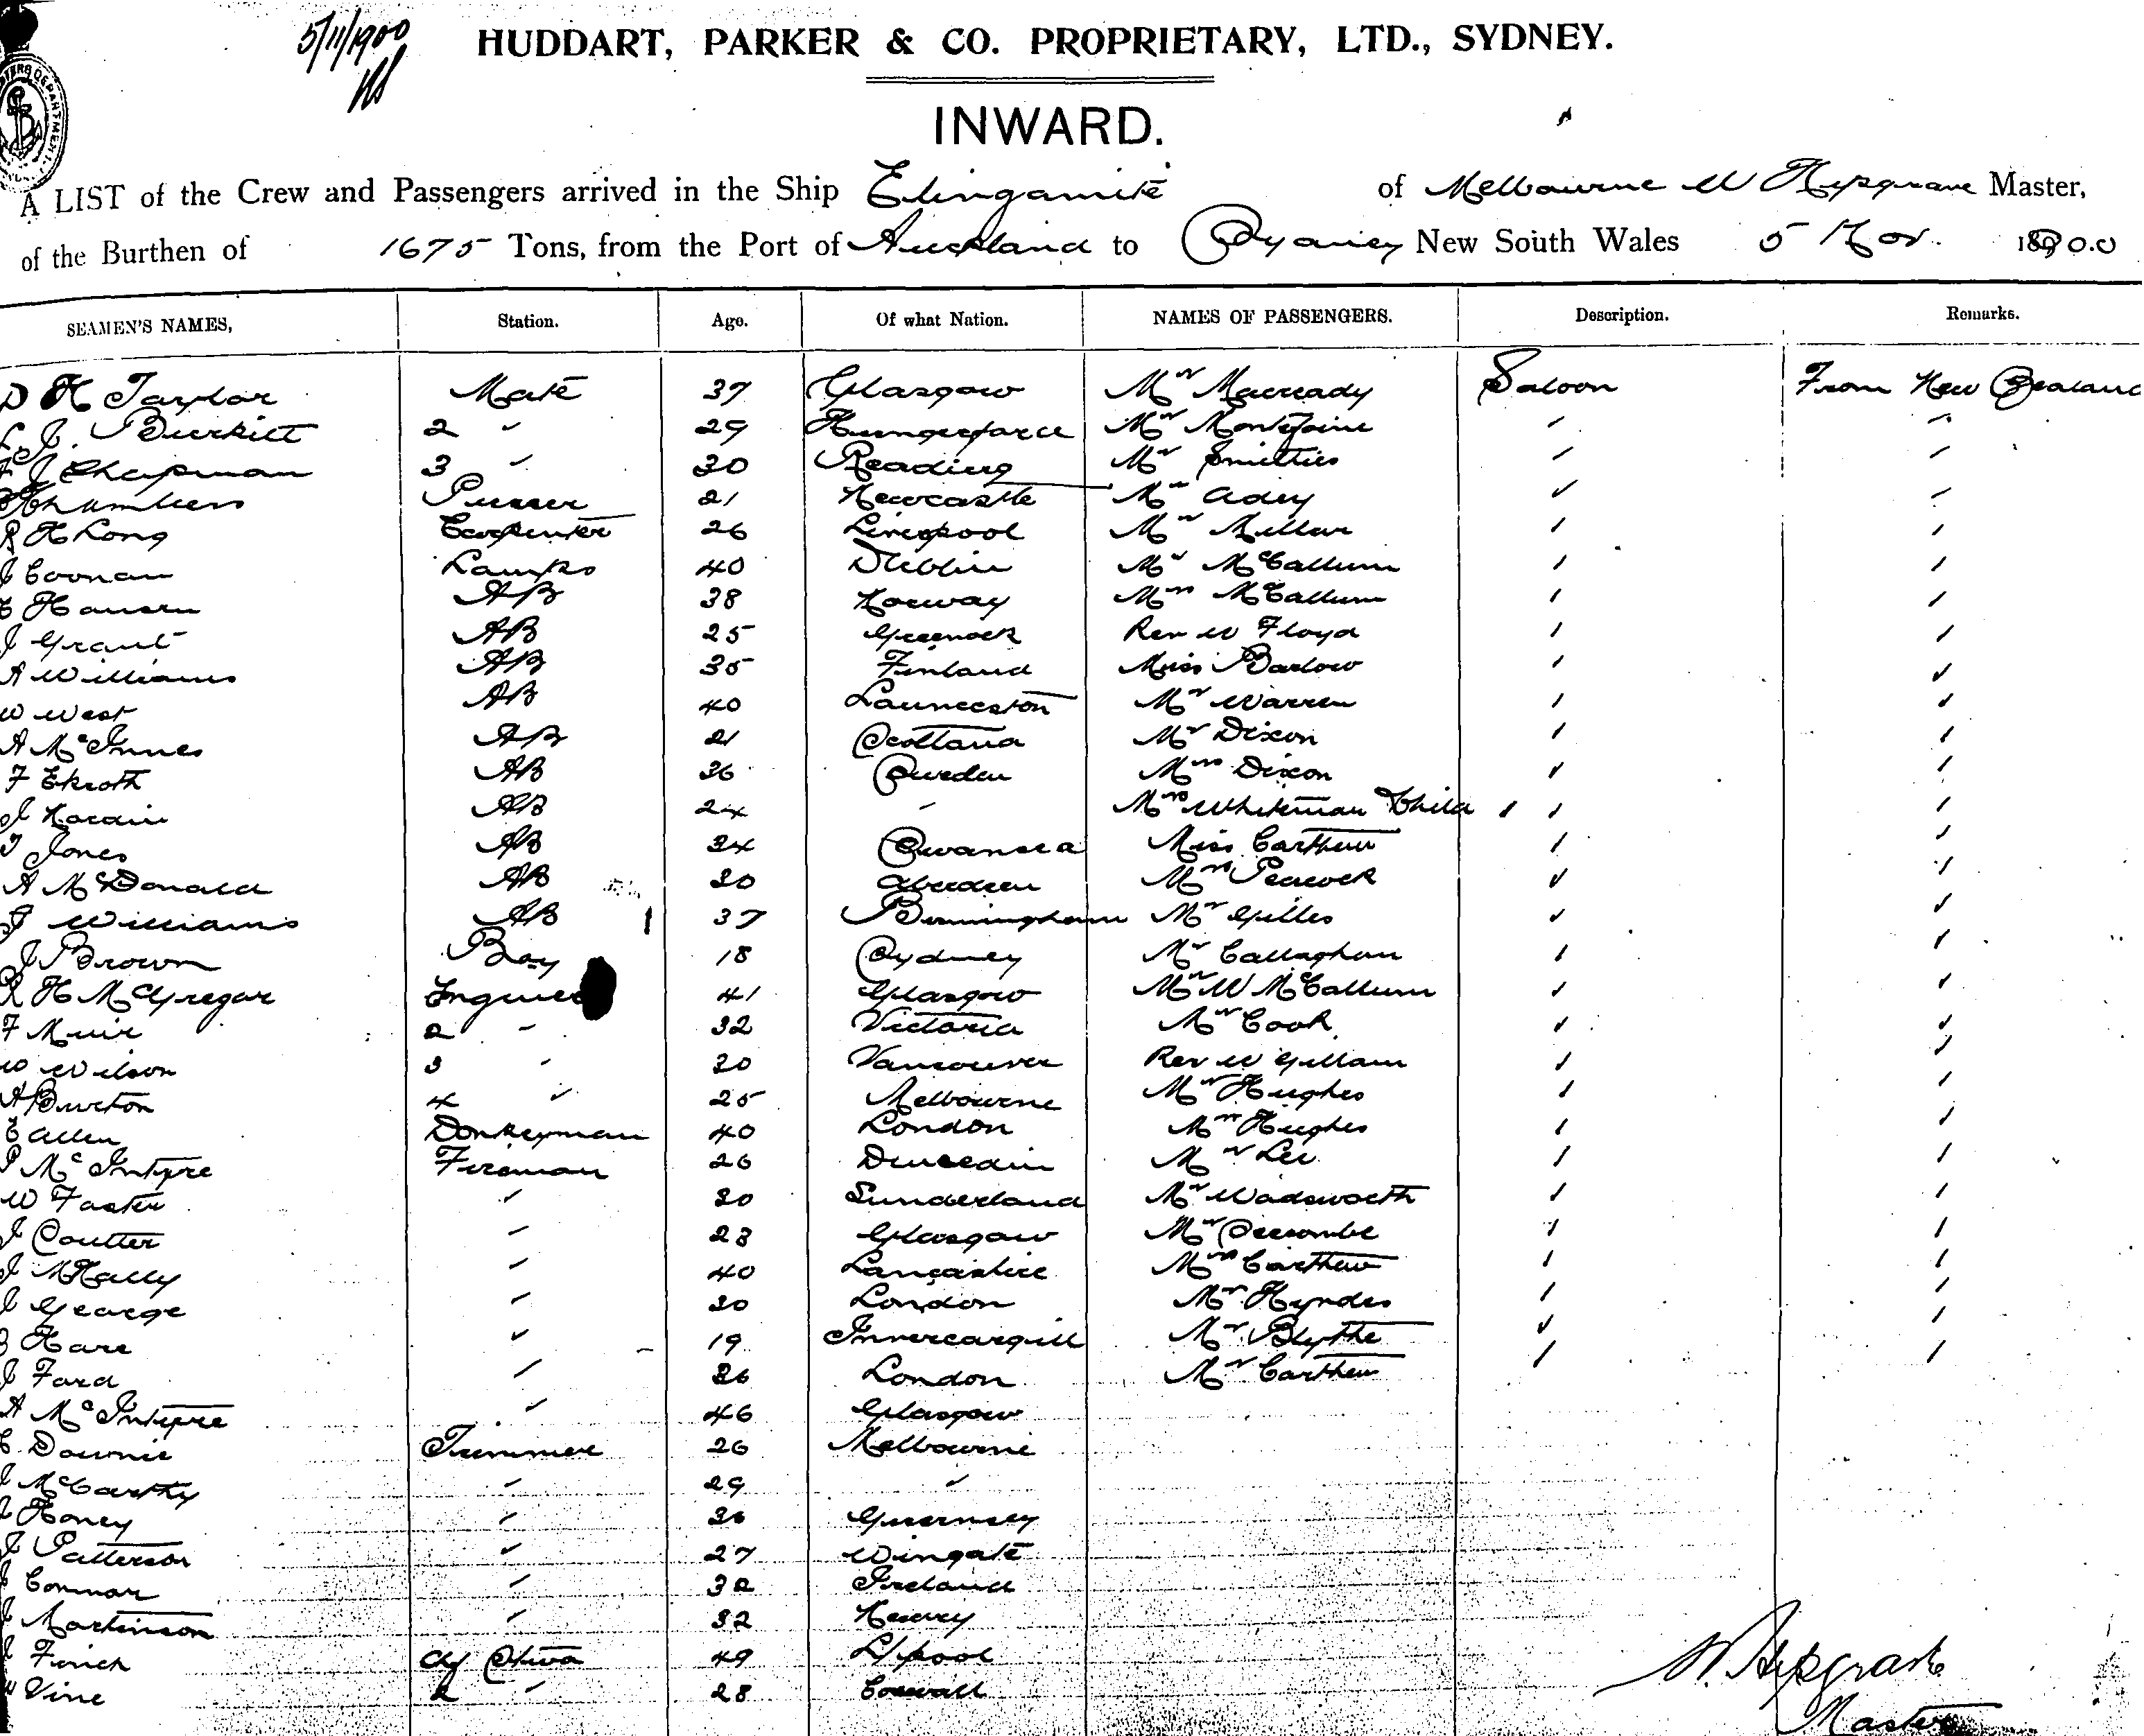 5/11/1900
HUDDART, PARKER & CO. PROPRIETARY, LTD., SYDNEY.
INWARD.
A LIST of the Crew and Passengers arrived in the Ship Elingamite of Melbourne W Hepgrave Master,
of the Burthen of 1675 Tons, from the Port of Auckland to Sydney New South Wales 5 Nov. 1900
SEAMEN'S NAMES, Station. Age. Of what Nation. NAMES OF PASSENGERS. Description. Remarks.
D H Taylor Mate 37 Glasgow Mr Macready Saloon From New Zealand
Burkitt 2 " 29 Mr Montefiore " "
J Chapman 3 " 30 Reading Mr Smithies " "
Chambers Purser 21 Newcastle Mr Adey " "
R H Long Carpenter 26 Liverpool Mr Millar " "
J Coonan Lamps 40 Dublin Mr McCallum " "
C Hansen AB 38 Norway Mrs McCallum " "
J Grant AB 25 Greenock Rev W Floyd " "
A Williams AB 35 Finland Miss Barlow " "
W West AB 40 Launceston Mr Warren " "
A McInnes AB 21 Scotland Mr Dixon " "
F Ekroth AB 36 Sweden Mrs Dixon " "
J AB 24 " Mrs Whiteman Child 1 " "
T Jones AB 34 Swansea Miss Carthew " "
A McDonald AB 30 Aberdeen Mrs Peacock " "
J Williams AB 37 Birmingham Mr Gilles " "
J Brown Boy 18 Sydney Mr Callaghan " "
R H McGregor Engineer 41 Glasgow Mr W McCallum " "
F Muir 2 " 32 Victoria Mr Cook " "
W Wilson 3 " 30 Vancouver Rev W Gillam " "
A Burton 4 " 25 Melbourne Mr Hughes " "
C Allen Donkeyman 40 London Mrs Hughes " "
P McIntyre Fireman 26 Dunedin Mr Lee " "
W Foster " 30 Sunderland Mr Wadsworth " "
J Coutter " 23 Glasgow Mr Seccombe " "
J McNally " 40 Lancashire Mrs Carthew " "
J George " 30 London Mr Hyndes " "
Hare " 19 Invercargill Mr Blythe " "
J Ford " 36 London Mr Carthew " "
A McIntyre " 46 Glasgow
C Downie Trimmer 26 Melbourne
J McCarthy " 29 "
Honey " 30 Guernsey
J Patterson " 27 Wingate
Connor " 32 Ireland
J Martinson " 32 Norway
J Finch Chf Stwd 49 L'pool
W Vine 2 " 28 Cornwall
W. Hepgrave
Master